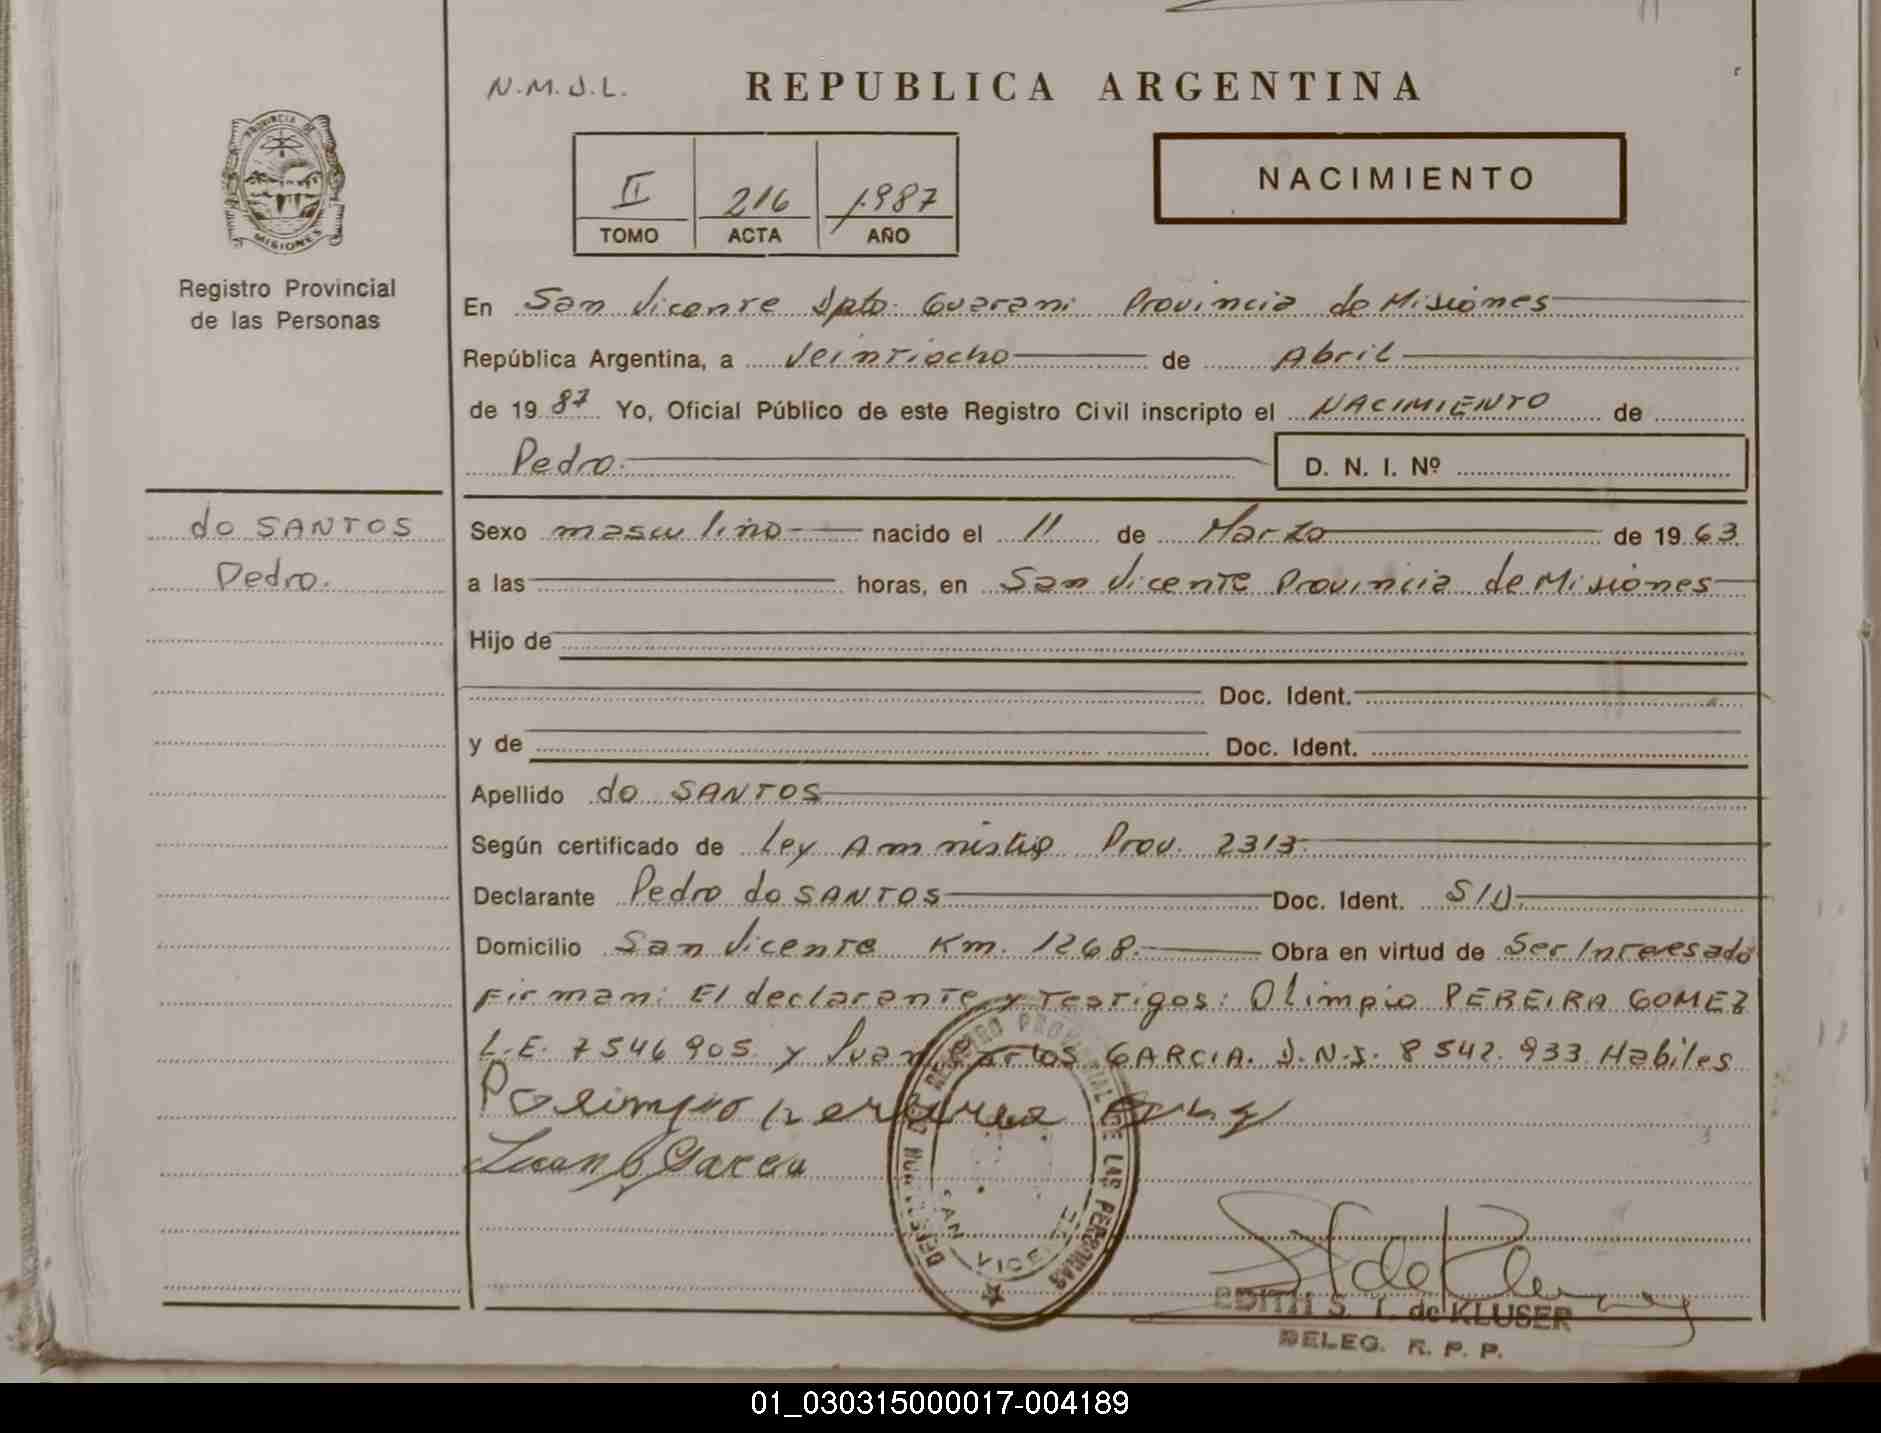 N.M.J.L.
REPUBLICA ARGENTINA
PROVINCIA DE
MISIONES
II 216 1987
TOMO ACTA AÑO
NACIMIENTO
Registro Provincial
de las Personas
En San Vicente Dpto. Guarani Provincia de Misiones
República Argentina, a Veintiocho de Abril
de 1987 Yo, Oficial Público de este Registro Civil inscripto el NACIMIENTO de
Pedro. D. N. I. Nº
do SANTOS
Pedro.
Sexo masculino nacido el 11 de Marzo de 1963
a las horas, en San Vicente Provincia de Misiones
Hijo de
Doc. Ident.
y de Doc. Ident.
Apellido do SANTOS
Según certificado de Ley Amnistia Prov. 2313.
Declarante Pedro do SANTOS Doc. Ident. S/D.
Domicilio San Vicente Km. 1268. Obra en virtud de Ser Interesado
Firman: El declarante y testigos: Olimpio PEREIRA GOMEZ
L.E. 7546905 y Juan Carlos GARCIA. D.N.I. 8542.933 Habiles
Juan C Garcia
REGISTRO PROVINCIAL DE LAS PERSONAS
SAN VICENTE
EDITH S. T. de KLUSER
DELEG. R. P. P.
01_030315000017-004189